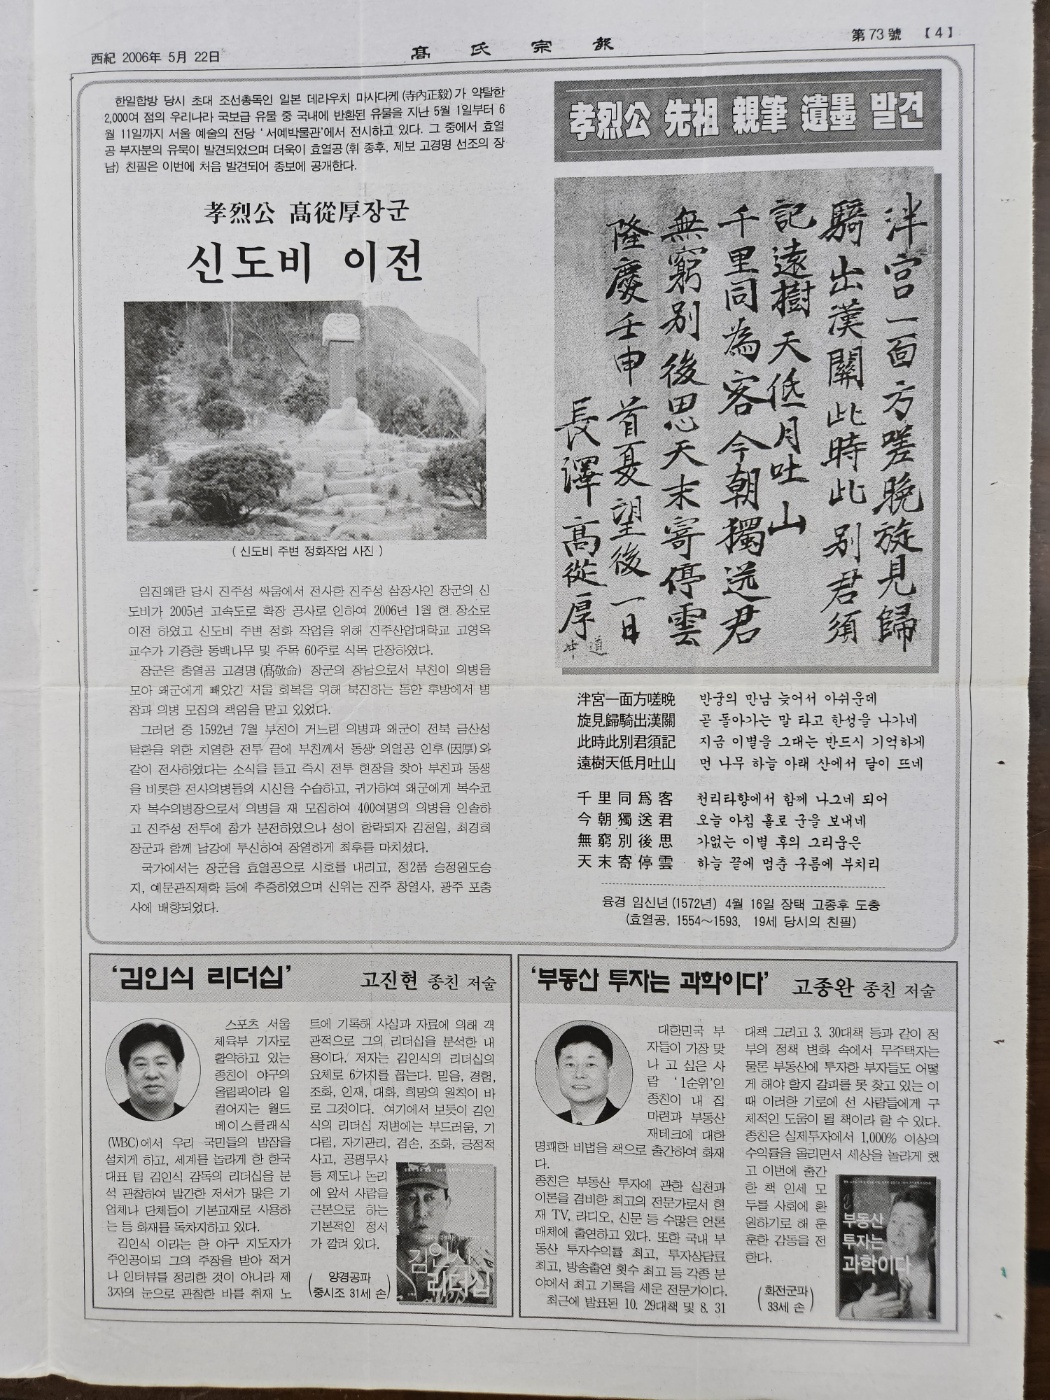 西紀 2006年 5月 22日
髙氏宗報
第73號 【4】
한일합방 당시 초대 조선총독인 일본 데라우치 마사다케(寺內正毅)가 약탈한
2,000여 점의 우리나라 국보급 유물 중 국내에 반환된 유물을 지난 5월 1일부터 6
월 11일까지 서울 예술의 전당 '서예박물관'에서 전시하고 있다. 그 중에서 효열
공 부자분의 유묵이 발견되었으며 더욱이 효열공(휘 종후, 제보 고경명 선조의 장
남) 친필은 이번에 처음 발견되어 종보에 공개한다.
孝烈公 髙從厚장군
신도비 이전
( 신도비 주변 정화작업 사진 )
임진왜란 당시 진주성 싸움에서 전사한 진주성 삼장사인 장군의 신
도비가 2005년 고속도로 확장 공사로 인하여 2006년 1월 현 장소로
이전 하였고 신도비 주변 정화 작업을 위해 진주산업대학교 고영옥
교수가 기증한 동백나무 및 주목 60주로 식목 단장하였다.
장군은 충열공 고경명(髙敬命) 장군의 장남으로서 부친이 의병을
모아 왜군에게 빼앗긴 서울 회복을 위해 북진하는 동안 후방에서 병
참과 의병 모집의 책임을 맡고 있었다.
그러던 중 1592년 7월 부친이 거느린 의병과 왜군이 전북 금산성
탈환을 위한 치열한 전투 끝에 부친께서 동생 의열공 인후(因厚)와
같이 전사하였다는 소식을 듣고 즉시 전투 현장을 찾아 부친과 동생
을 비롯한 전사의병들의 시신을 수습하고, 귀가하여 왜군에게 복수코
자 복수의병장으로서 의병을 재 모집하여 400여명의 의병을 인솔하
고 진주성 전투에 참가 분전하였으나 성이 함락되자 김천일, 최경회
장군과 함께 남강에 투신하여 장열하게 최후를 마치셨다.
국가에서는 장군을 효열공으로 시호를 내리고, 정2품 승정원도승
지, 예문관직제학 등에 추증하였으며 신위는 진주 창열사, 광주 포충
사에 배향되었다.
孝烈公 先祖 親筆 遺墨 발견
泮宮一面方嗟晩旋見歸
騎出漢關此時此別君須
記遠樹天低月吐山
千里同為客今朝獨送君
無窮別後思天末寄停雲
隆慶壬申首夏望後一日
長澤髙從厚
道冲
泮宮一面方嗟晩 반궁의 만남 늦어서 아쉬운데
旋見歸騎出漢關 곧 돌아가는 말 타고 한성을 나가네
此時此別君須記 지금 이별을 그대는 반드시 기억하게
遠樹天低月吐山 먼 나무 하늘 아래 산에서 달이 뜨네
千里同爲客 천리타향에서 함께 나그네 되어
今朝獨送君 오늘 아침 홀로 군을 보내네
無窮別後思 가없는 이별 후의 그리움은
天末寄停雲 하늘 끝에 멈춘 구름에 부치리
융경 임신년(1572년) 4월 16일 장택 고종후 도충
(효열공, 1554～1593, 19세 당시의 친필)
'김인식 리더십' 고진현 종친 저술
스포츠 서울
체육부 기자로
활약하고 있는
종친이 야구의
올림픽이라 일
컬어지는 월드
베이스클래식
(WBC)에서 우리 국민들의 밤잠을
설치게 하고, 세계를 놀라게 한 한국
대표 팀 김인식 감독의 리더십을 분
석 관찰하여 발간한 저서가 많은 기
업체나 단체들이 기본교재로 사용하
는 등 화재를 독차지하고 있다.
김인식 이라는 한 야구 지도자가
주인공이되 그의 주장을 받아 적거
나 인터뷰를 정리한 것이 아니라 제
3자의 눈으로 관찰한 바를 취재 노
트에 기록해 사실과 자료에 의해 객
관적으로 그의 리더십을 분석한 내
용이다. 저자는 김인식의 리더십의
요체로 6가지를 꼽는다. 믿음, 경험,
조화, 인재, 대화, 희망의 원칙이 바
로 그것이다. 여기에서 보듯이 김인
식의 리더십 저변에는 부드러움, 기
다림, 자기관리, 겸손, 조화, 긍정적
사고, 공평무사
등 제도나 논리
에 앞서 사람을
근본으로 하는
기본적인 정서
가 깔려 있다.
양경공파
중시조 31세 손
김인식
리더십
'부동산 투자는 과학이다' 고종완 종친 저술
대한민국 부
자들이 가장 맞
나 고 싶은 사
람 '1순위'인
종친이 내 집
마련과 부동산
재테크에 대한
명쾌한 비법을 책으로 출간하여 화재
다.
종친은 부동산 투자에 관한 실전과
이론을 겸비한 최고의 전문가로서 현
재 TV, 라디오, 신문 등 수많은 언론
매체에 출연하고 있다. 또한 국내 부
동산 투자수익률 최고, 투자상담료
최고, 방송출연 횟수 최고 등 각종 분
야에서 최고 기록을 세운 전문가이다.
최근에 발표된 10. 29대책 및 8. 31
대책 그리고 3. 30대책 등과 같이 정
부의 정책 변화 속에서 무주택자는
물론 부동산에 투자한 부자들도 어떻
게 해야 할지 갈피를 못 찾고 있는 이
때 이러한 기로에 선 사람들에게 구
체적인 도움이 될 책이라 할 수 있다.
종친은 실제투자에서 1,000% 이상의
수익률을 올리면서 세상을 놀라게 했
고 이번에 출간
한 책 인세 모
두를 사회에 환
원하기로 해 훈
훈한 감동을 전
한다.
화전군파
33세 손
부동산
투자는
과학이다